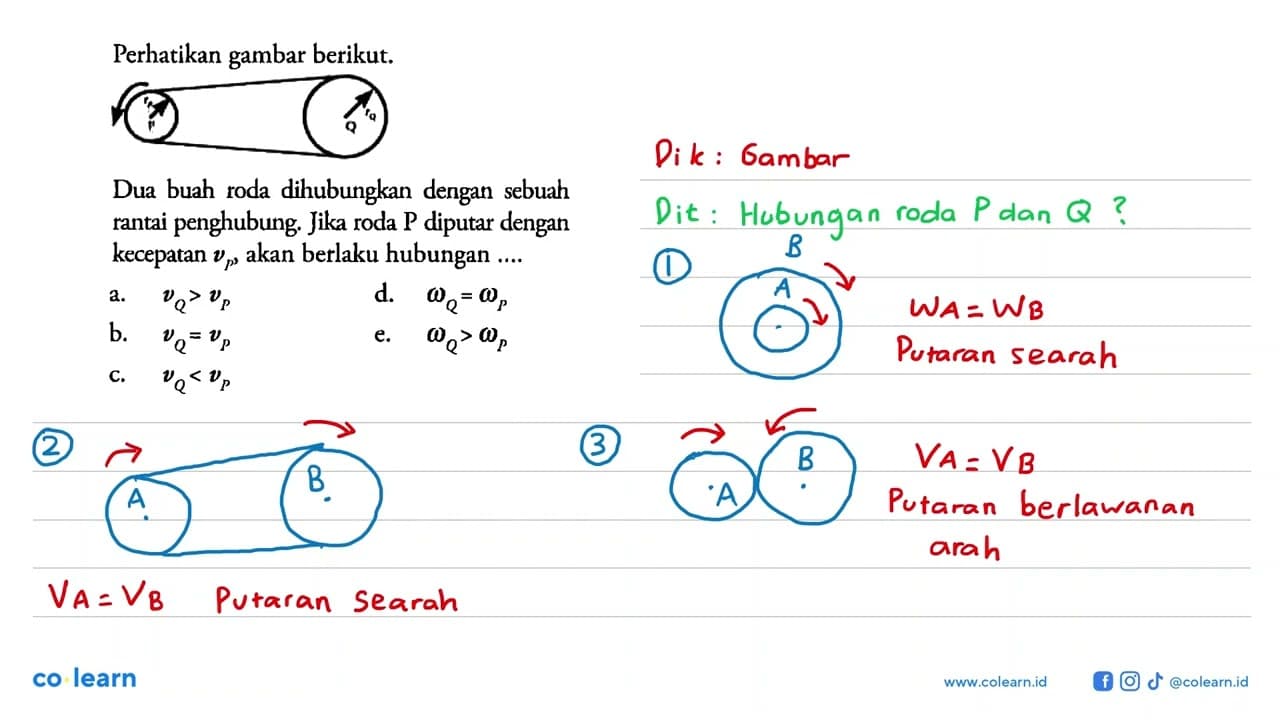 Perhatikan gambar berikut.
P
Q
r_Q
Dua buah roda dihubungkan dengan sebuah
rantai penghubung. Jika roda P diputar dengan
kecepatan v_P, akan berlaku hubungan ....
a. v_Q > v_P
b. v_Q = v_P
c. v_Q < v_P
d. ω_Q = ω_P
e. ω_Q > ω_P
Dik : Gambar
Dit : Hubungan roda P dan Q ?
1
B
A
WA = WB
Putaran searah
2
A
B
VA = VB Putaran searah
3
A
B
VA = VB
Putaran berlawanan
arah
co learn
www.colearn.id
@colearn.id